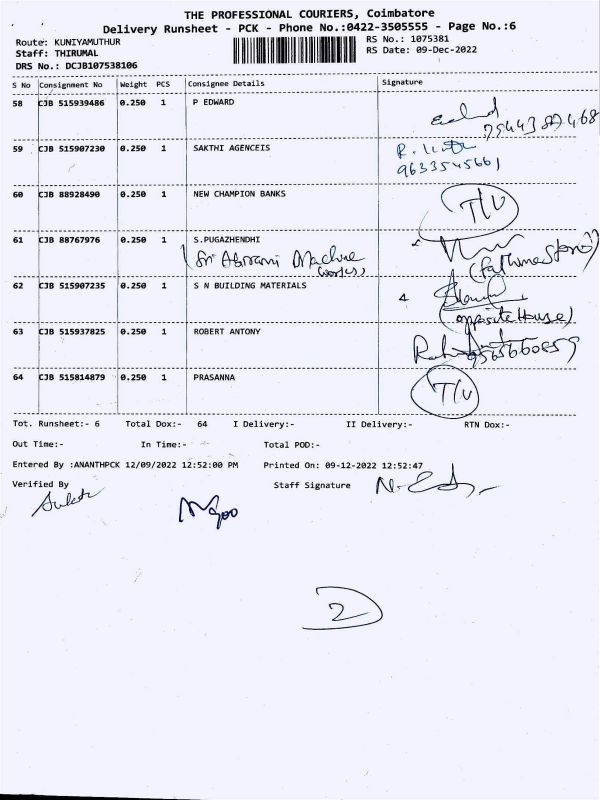 THE PROFESSIONAL COURIERS, Coimbatore
Delivery Runsheet - PCK - Phone No.:0422-3505555 - Page No.:6
Route: KUNIYAMUTHUR
RS No.: 1075381
Staff: THIRUMAL
RS Date: 09-Dec-2022
DRS No.: DCJB107538106
S No Consignment No Weight PCS Consignee Details Signature
58 CJB 515939486 0.250 1 P EDWARD
59 CJB 515907230 0.250 1 SAKTHI AGENCEIS
9633545661
60 CJB 88928490 0.250 1 NEW CHAMPION BANKS
61 CJB 88767976 0.250 1 S.PUGAZHENDHI
Sri Abirami Machine
works
62 CJB 515907235 0.250 1 S N BUILDING MATERIALS
(opposite House)
63 CJB 515937825 0.250 1 ROBERT ANTONY
64 CJB 515814879 0.250 1 PRASANNA
Tot. Runsheet:- 6 Total Dox:- 64 I Delivery:- II Delivery:- RTN Dox:-
Out Time:- In Time:- Total POD:-
Entered By :ANANTHPCK 12/09/2022 12:52:00 PM Printed On: 09-12-2022 12:52:47
Verified By Staff Signature
2